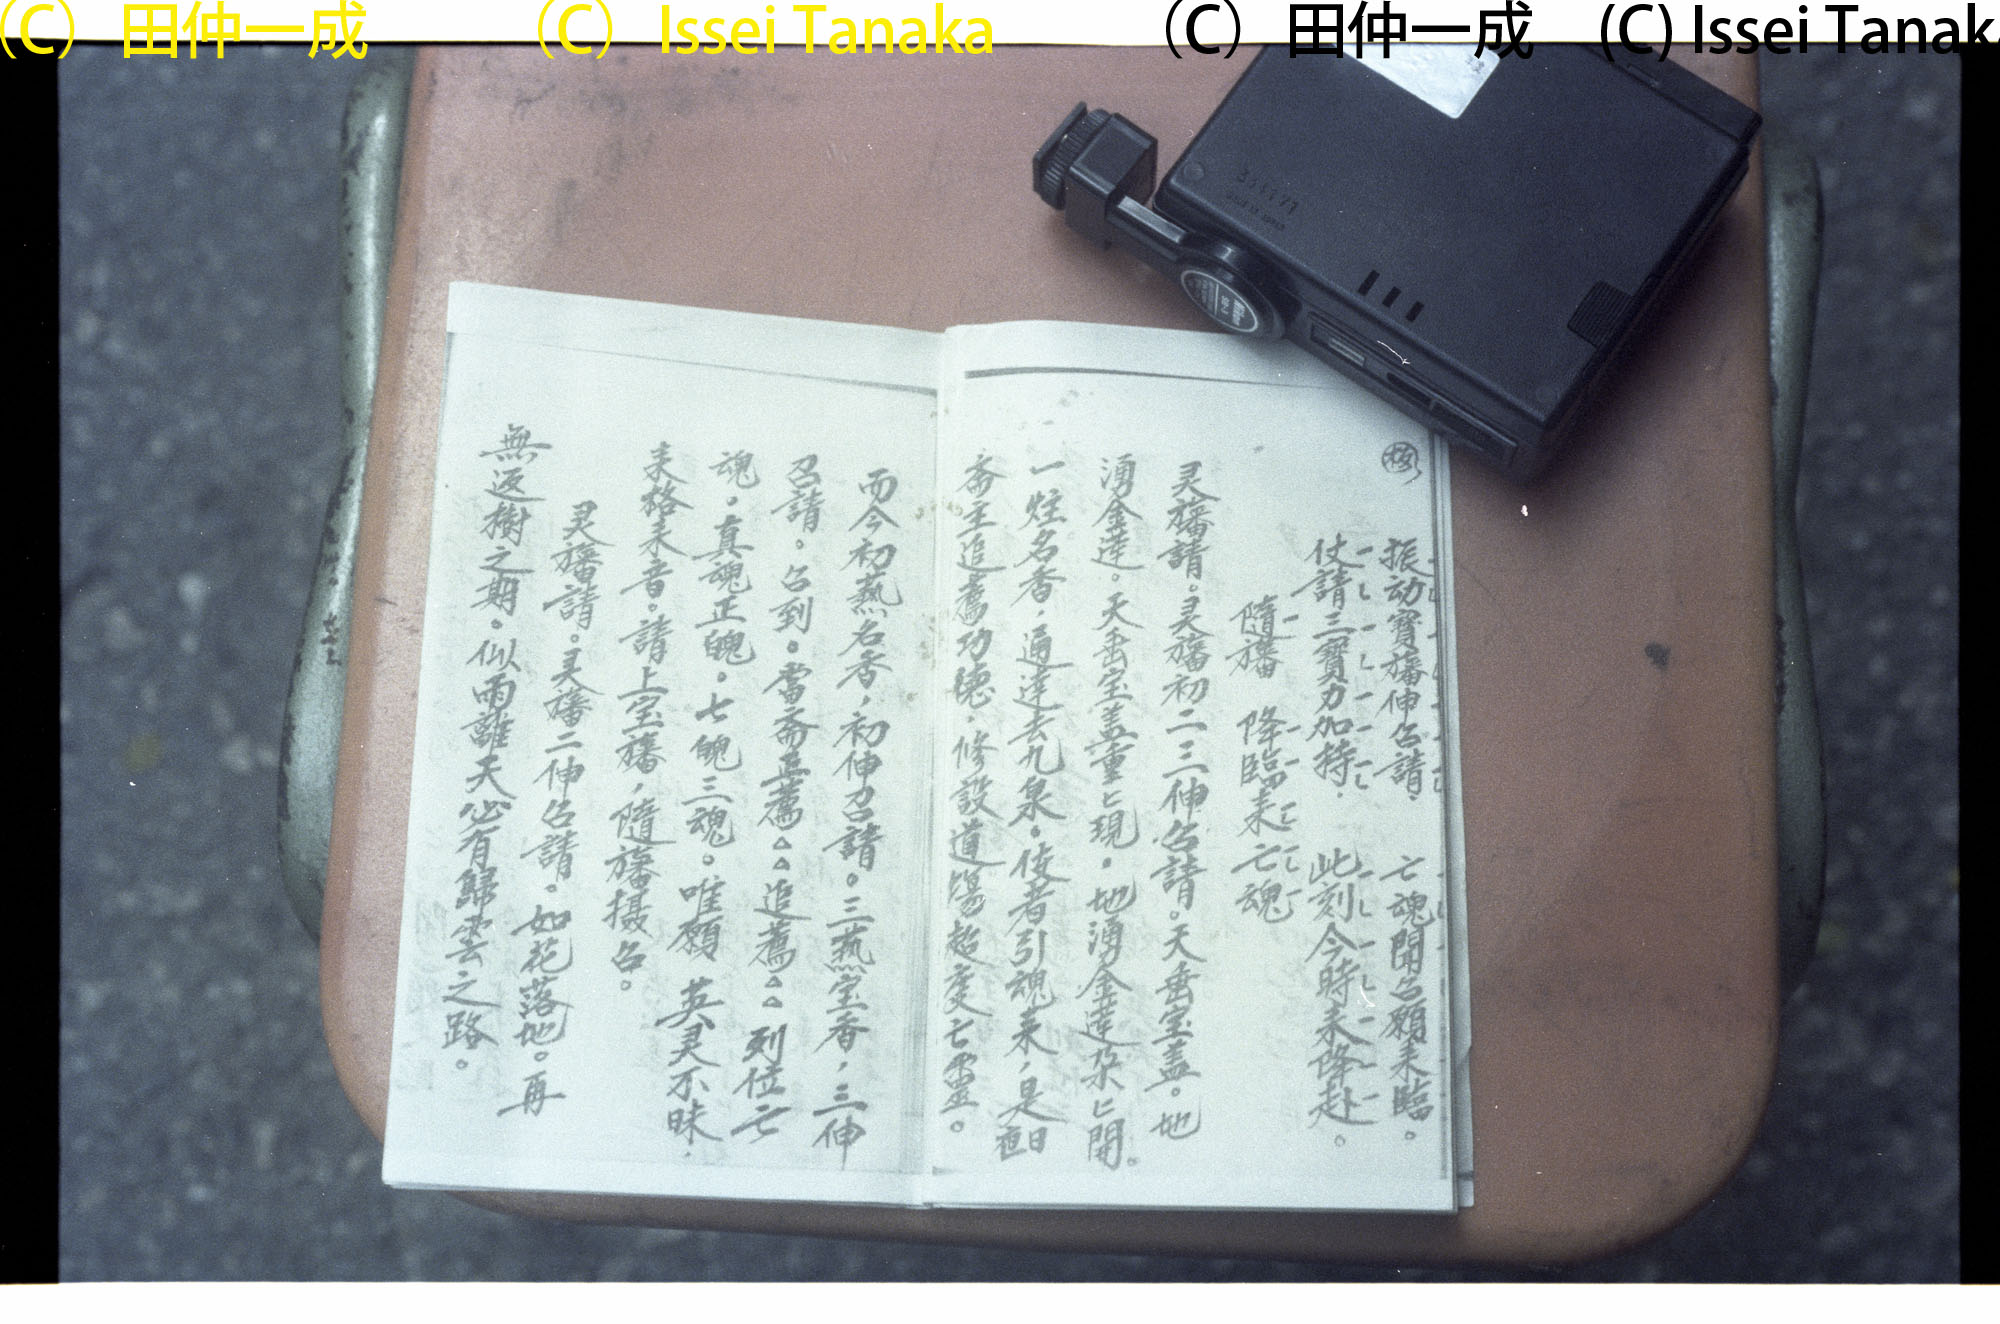 (C) 田仲一成 (C) Issei Tanaka (C) 田仲一成 (C) Issei Tanaka
振动寳旛伸召請、 亡魂聞召願来臨。
仗請三寳力加持、 此刻今時来降赴。
隨旛 降臨来亡魂
灵旛請。灵旛初二三伸召請。天垂宝盖。地
湧金莲。天垂宝盖重〻現。地湧金莲朵〻開。
一炷名香，通達去九泉。使者引魂来，是日
斋主追薦功德，修設道場超度亡靈。
而今初爇名香，初伸召請。三爇宝香，三伸
召請。召到。當斋正薦△△追薦△△列位亡
魂。真魂正魄。七魄三魂。唯願 英灵不昧，
来格来音。請上宝旛，隨旛摄召。
灵旛請。灵旛二伸召請。如花落地。再
無返樹之期。似雨離天必有歸雲之路。
Nikon